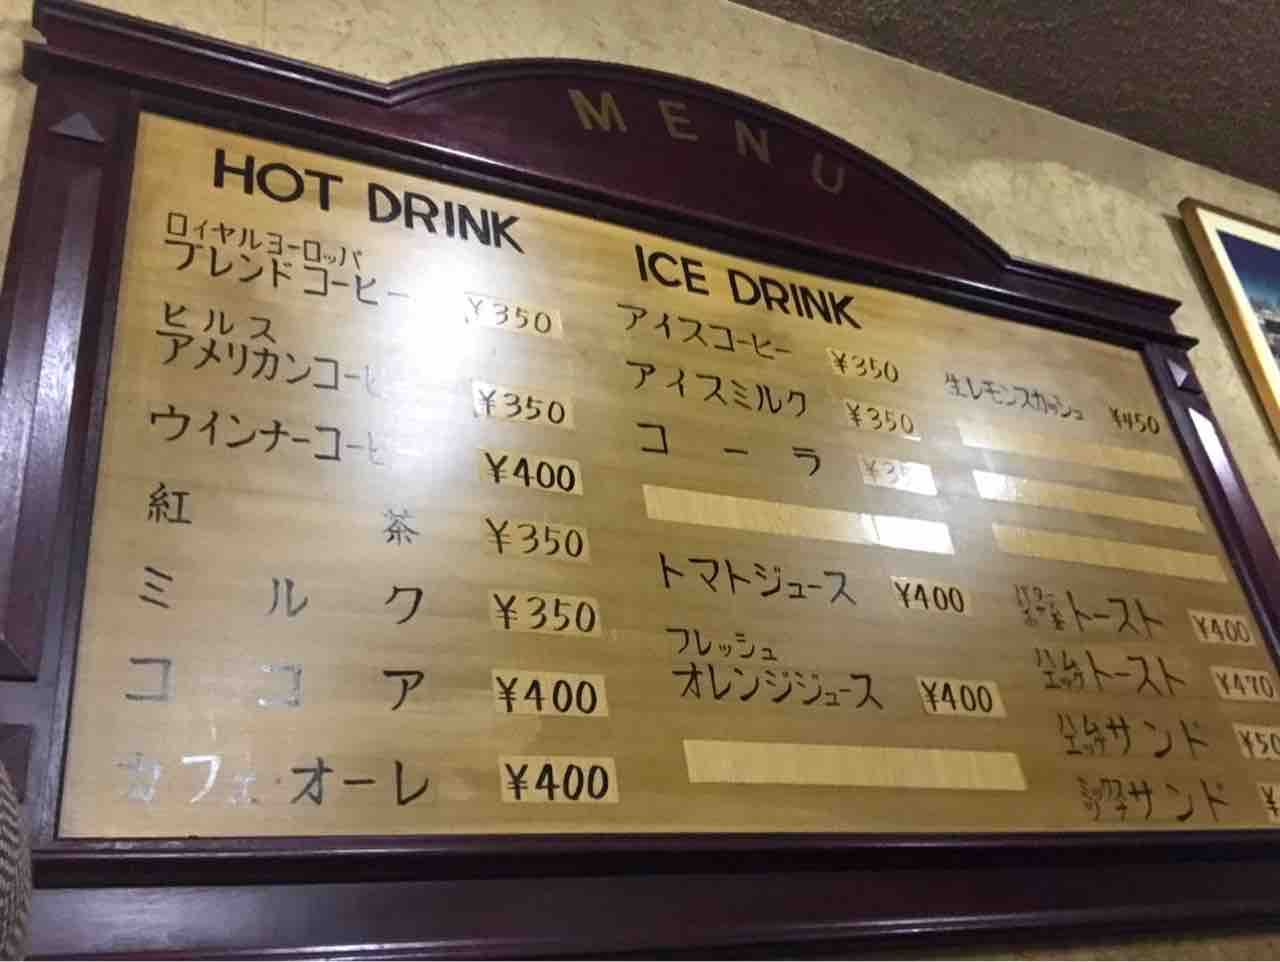 MENU
HOT DRINK
ロイヤルヨーロッパ
ブレンドコーヒー ¥350
ヒルス
アメリカンコーヒー ¥350
ウインナーコーヒー ¥400
紅茶 ¥350
ミルク ¥350
ココア ¥400
カフェ・オーレ ¥400
ICE DRINK
アイスコーヒー ¥350
アイスミルク ¥350
コーラ ¥35
トマトジュース ¥400
フレッシュ
オレンジジュース ¥400
生レモンスカッシュ ¥450
トースト ¥400
ハム
エッグ トースト ¥470
ハム
エッグ サンド ¥50
ミックス サンド ¥